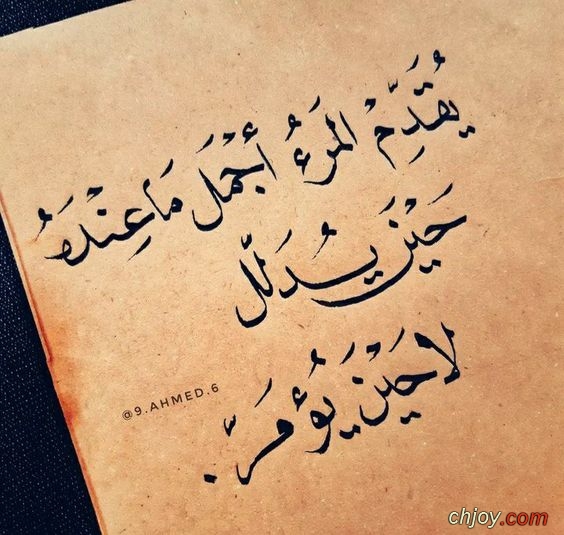 يُقَدِّمْ المَرءُ أَجْمَلَ مَا عِنْدَهُ
حَيْنَ يُدَلّل
لا حَيْنَ يُؤمَرّ.
@9.AHMED.6
chjoy.com